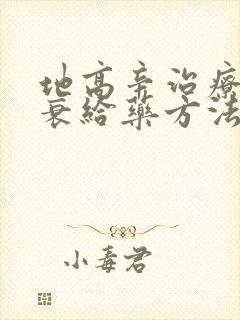 地高辛治療
衰給藥方法
小毒君